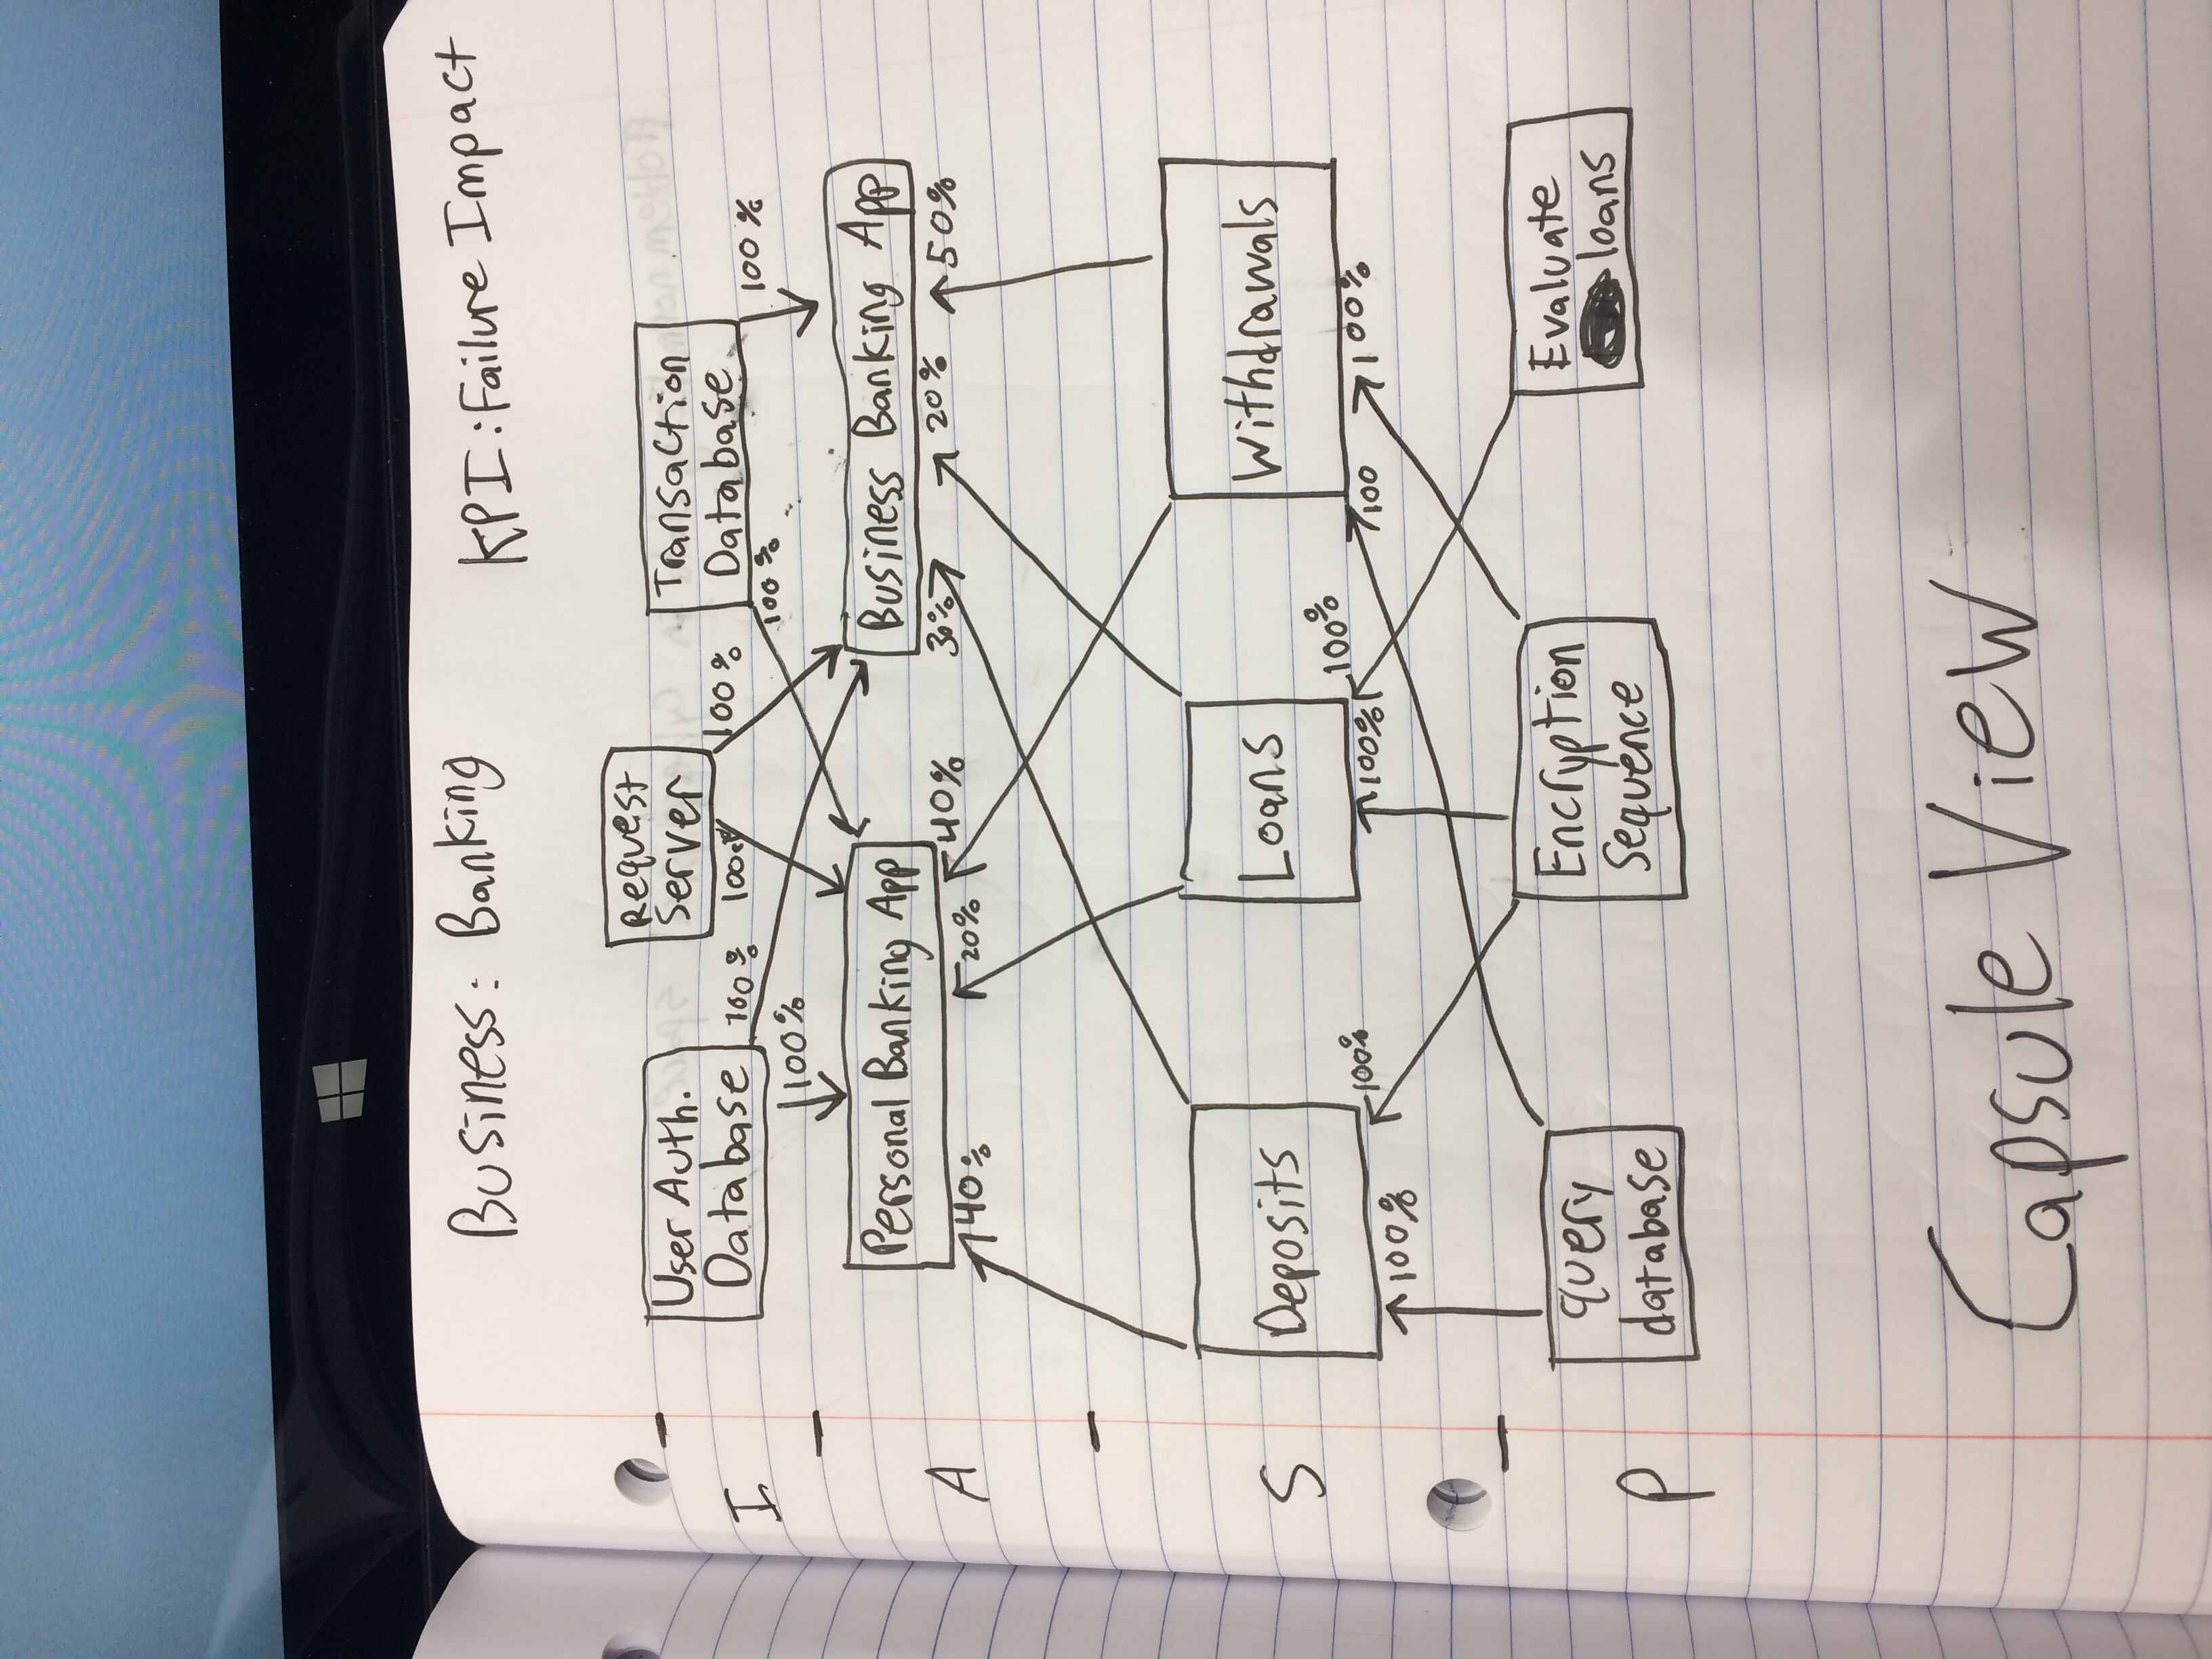 Business: Banking
KPI: Failure Impact
Request
Server
User Auth.
Database
Transaction
Database
I
100%
100%
100%
100%
100%
100%
Personal Banking App
Business Banking App
A
40%
20%
40%
30%
20%
50%
S
Deposits
Loans
Withdrawals
100%
100%
100%
100%
100
100%
P
query
database
Encryption
Sequence
Evaluate
loans
Capsule View